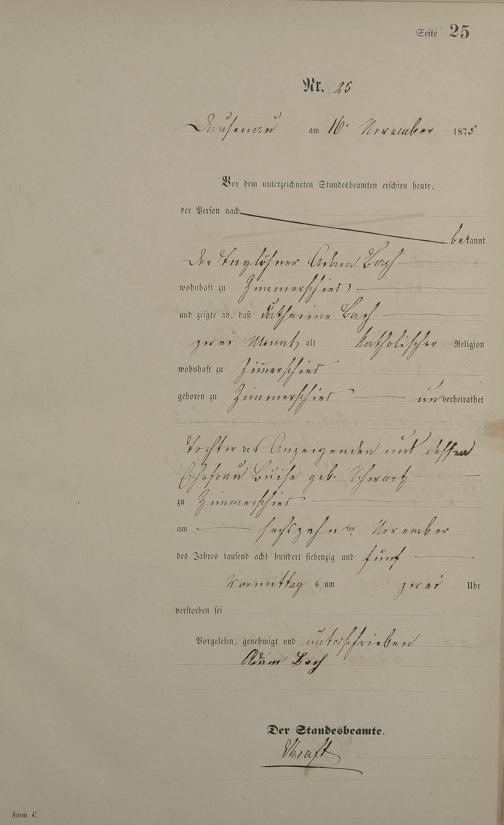 Seite 25
Nr. 25
Dausenau am 16. November 1875
Vor dem unterzeichneten Standesbeamten erschien heute,
der Person nach
bekannt
der Taglöhner Adam Bach
wohnhaft zu Zimmerschied
und zeigte an, daß Katharine Bach
zwei Monat alt katholischer Religion
wohnhaft zu Zimmerschied
geboren zu Zimmerschied unverheirathet
Tochter des Anzeigenden und dessen
Ehefrau geb. Schwartz
zu Zimmerschied
am sechszehnten November
des Jahres tausend acht hundert siebenzig und fünf
Vormittags um zwei Uhr
verstorben sei
Vorgelesen, genehmigt und unterschrieben
Adam Bach
Der Standesbeamte.
Kraft
Form. C.